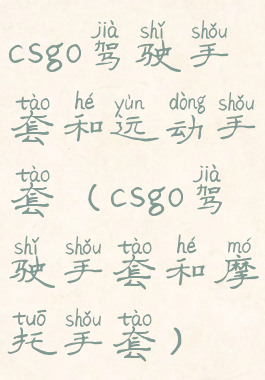 jià shǐ shǒu
csgo驾驶手
tào hé yùn dòng shǒu
套和运动手
tào jià
套（csgo驾
shǐ shǒu tào hé mó
驶手套和摩
tuō shǒu tào
托手套）